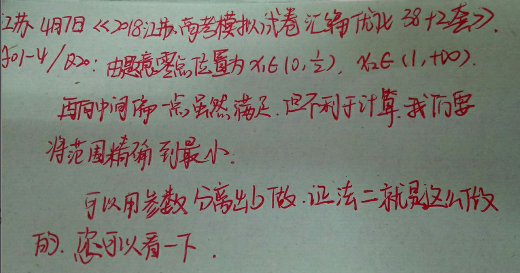 江苏 4月7日《2018江苏高考模拟试卷汇编优化38+2套》.
J01-4/P20: 由题意零点位置为 x₁∈(0,½), x₂∈(1,+∞).
再向中间偏一点虽然满足.但不利于计算.我们要
将范围精确到最小.
可以用参数分离出b做.证法二就是这么做
的.您可以看一下.